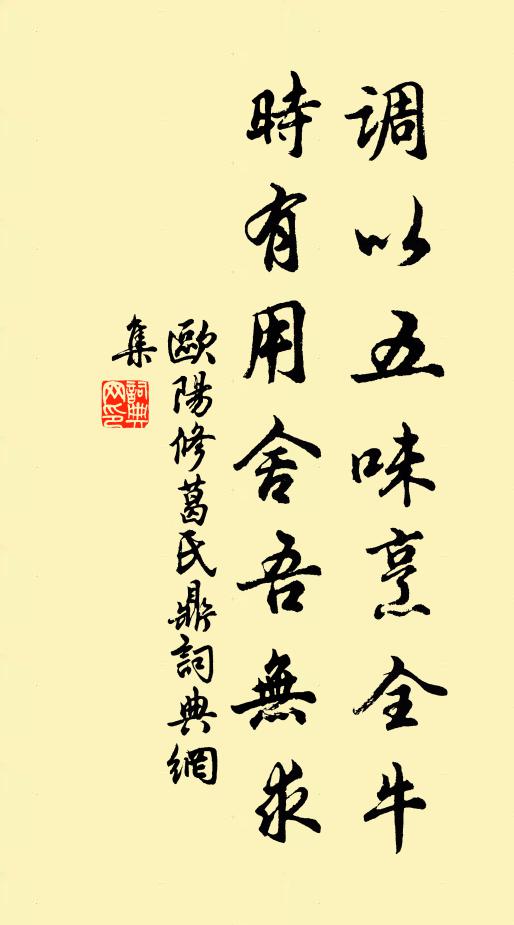 調以五味烹全牛
時有用舍吾無求
歐陽修葛氏鼎詞典網
集
詞典
网印